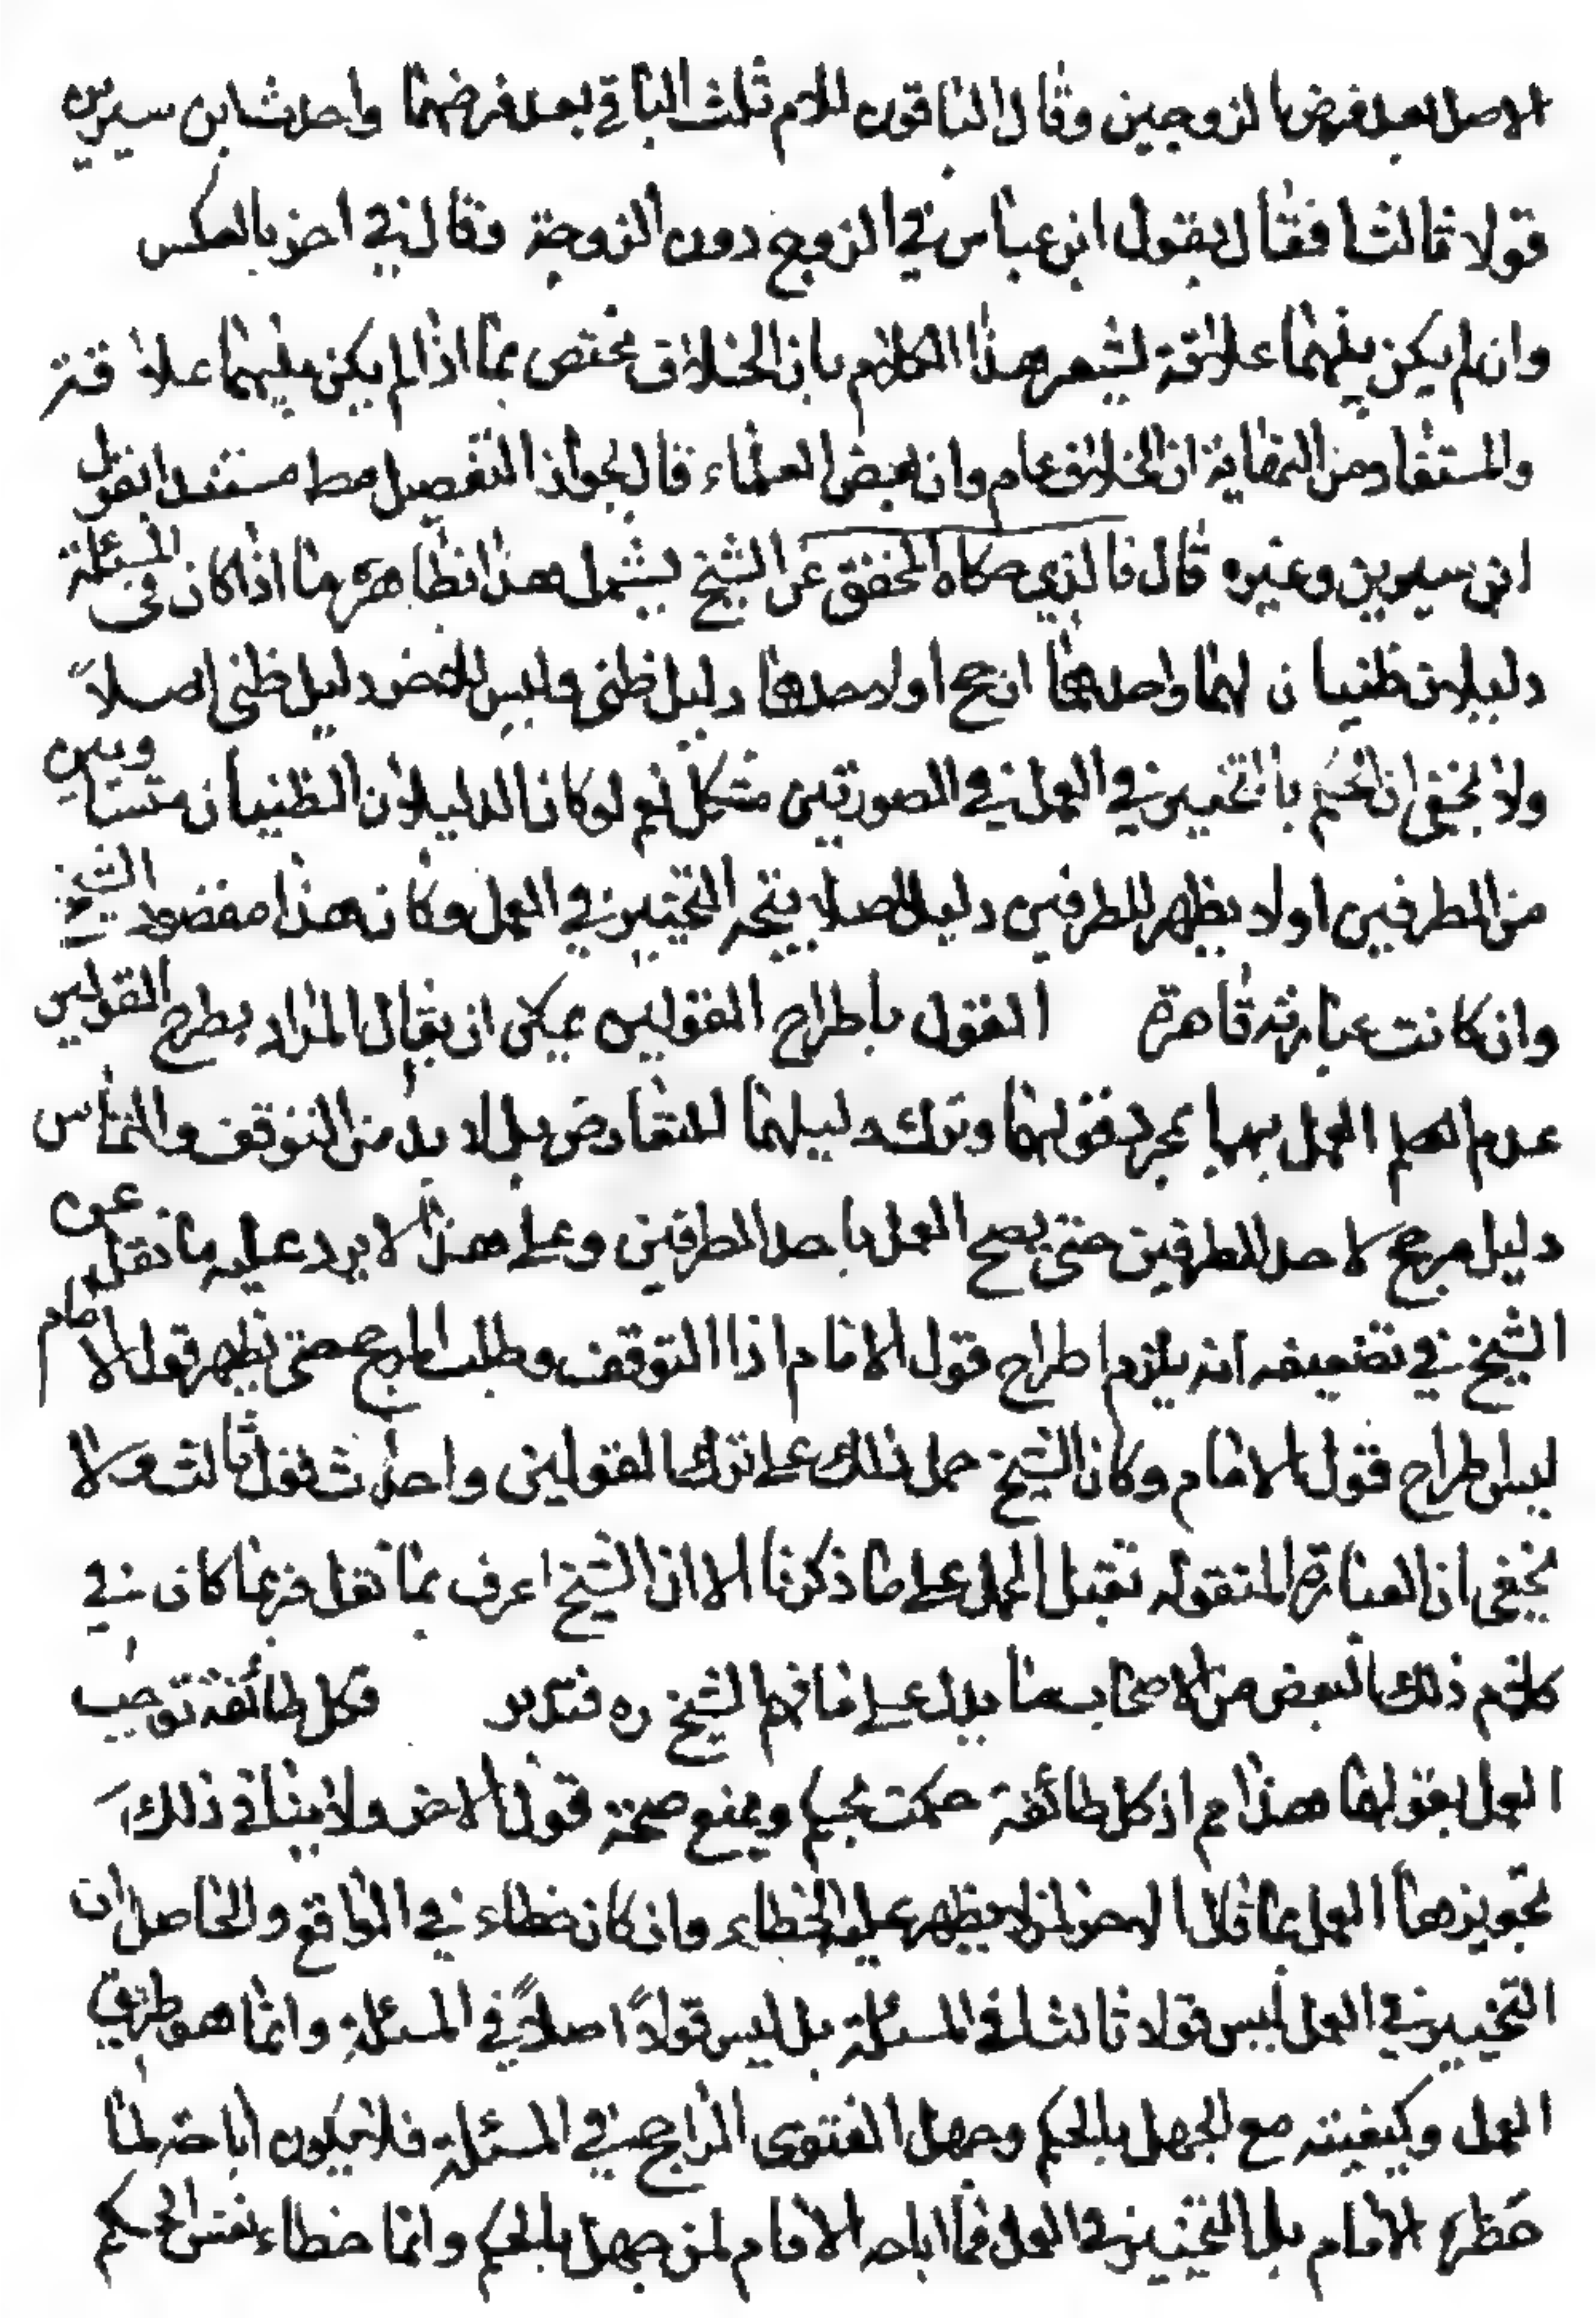 الاصل بعد فرض الزوجين وقال الباقون للام ثلث الباقي بعد فرضهما واحدث ابن سيرين
قولا ثالثا فقال بقول ابن عباس في الزوج دون الزوجة وقال في اخر بالعكس
وان لم يكن بينهما علاقة يشعر هذا الكلام بان الخلاف مختص بما اذا لم يكن بينهما علاقة
والمستفاد من النهاية ان الخلاف عام وان بعض العلماء قال بجواز التفصيل مط مستند ابقول
ابن سيرين وغيره قال فالذي حكاه المحقق عن الشيخ يشمل هذا بظاهره ما اذا كان في المسئلة
دليلان ظنيان لهما واحدهما ارجح او لاحدهما دليل ظني وليس للاخر دليل ظني اصلاً
ولا يخفى ان الحكم بالتخيير في العمل في الصورتين مشكل نعم لو كان الدليلان الظنيان متساويين
من الطرفين اولا يظهر للطرفين دليل اصلا يتجه التخيير في العمل وكان هذا مقصود الشيخ
وان كانت عبارته قاهرة القول باطراح القولين يمكن ان يقال المراد بطرح القولين
عدم العمل بهما بمجرد قولهما وترك دليلهما للتعارض بل لا بد من التوقف والتماس
دليل مرجح لاحد الطرفين حتى يصح العمل باحد الطرفين وعلى هذا لا يرد عليه ما نقل عن
الشيخ في تضعيفه انه يلزم اطراح قول الامام اذا التوقف وطلب المرجح حتى يظهر قول الامام
ليس اطراح قول الامام وكان الشيخ حمل ذلك على ترك القولين واحداث قول ثالث ولا
يخفى ان العبارة المنقوله تقبل الحمل على ما ذكرنا الا ان الشيخ اعرف بما نقل فربما كان في
كلام ذلك البعض من الاصحاب ما يدل على ما فهم الشيخ ره فتدبر فكل طائفة توجب
العمل بقولها هذا مم اذ كل طائفة حكمت بحكم ويمنع صحة قول الاخر ولا ينافي ذلك
تجويزها العمل بما قال الاخر لمن لم يظهر عليه الخطاء وان كان خطاء في الواقع والحاصل ان
التخيير في العمل ليس قولا ثالثا في المسئلة بل ليس قولاً اصلاً في المسئلة وانما هو طريق
العمل وكيفيته مع الجهل بالحكم وجهل الفتوى الراجح في المسئلة فلا يكون اباحة لما
حظره الامام بل التخيير في العمل مما اباحه الامام لمن جهل بالحكم وانما خطاء نفس الحكم